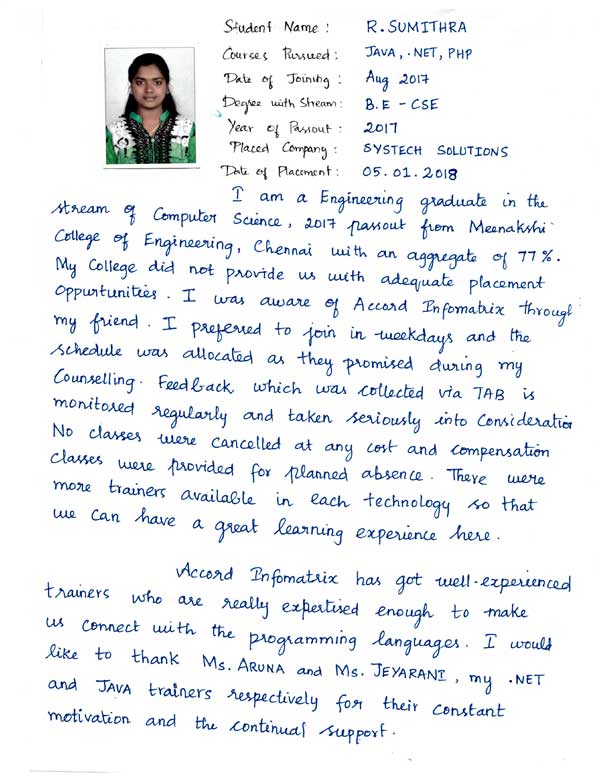 Student Name : R. SUMITHRA
Courses Pursued : JAVA, .NET, PHP
Date of Joining : Aug 2017
Degree with Stream : B.E - CSE
Year of Passout : 2017
Placed Company : SYSTECH SOLUTIONS
Date of Placement : 05.01.2018
I am a Engineering graduate in the
stream of Computer Science, 2017 passout from Meenakshi
College of Engineering, Chennai with an aggregate of 77%.
My College did not provide us with adequate placement
Oppurtunities. I was aware of Accord Infomatrix through
my friend. I preferred to join in weekdays and the
schedule was allocated as they promised during my
Counselling. Feedback which was collected via TAB is
monitored regularly and taken seriously into Consideratio
No classes were cancelled at any cost and compensation
classes were provided for planned absence. There were
more trainers available in each technology so that
we can have a great learning experience here.
Accord Infomatrix has got well-experienced
trainers who are really expertised enough to make
us connect with the programming languages. I would
like to thank Ms. ARUNA and Ms. JEYARANI, my .NET
and JAVA trainers respectively for their constant
motivation and the continual support.